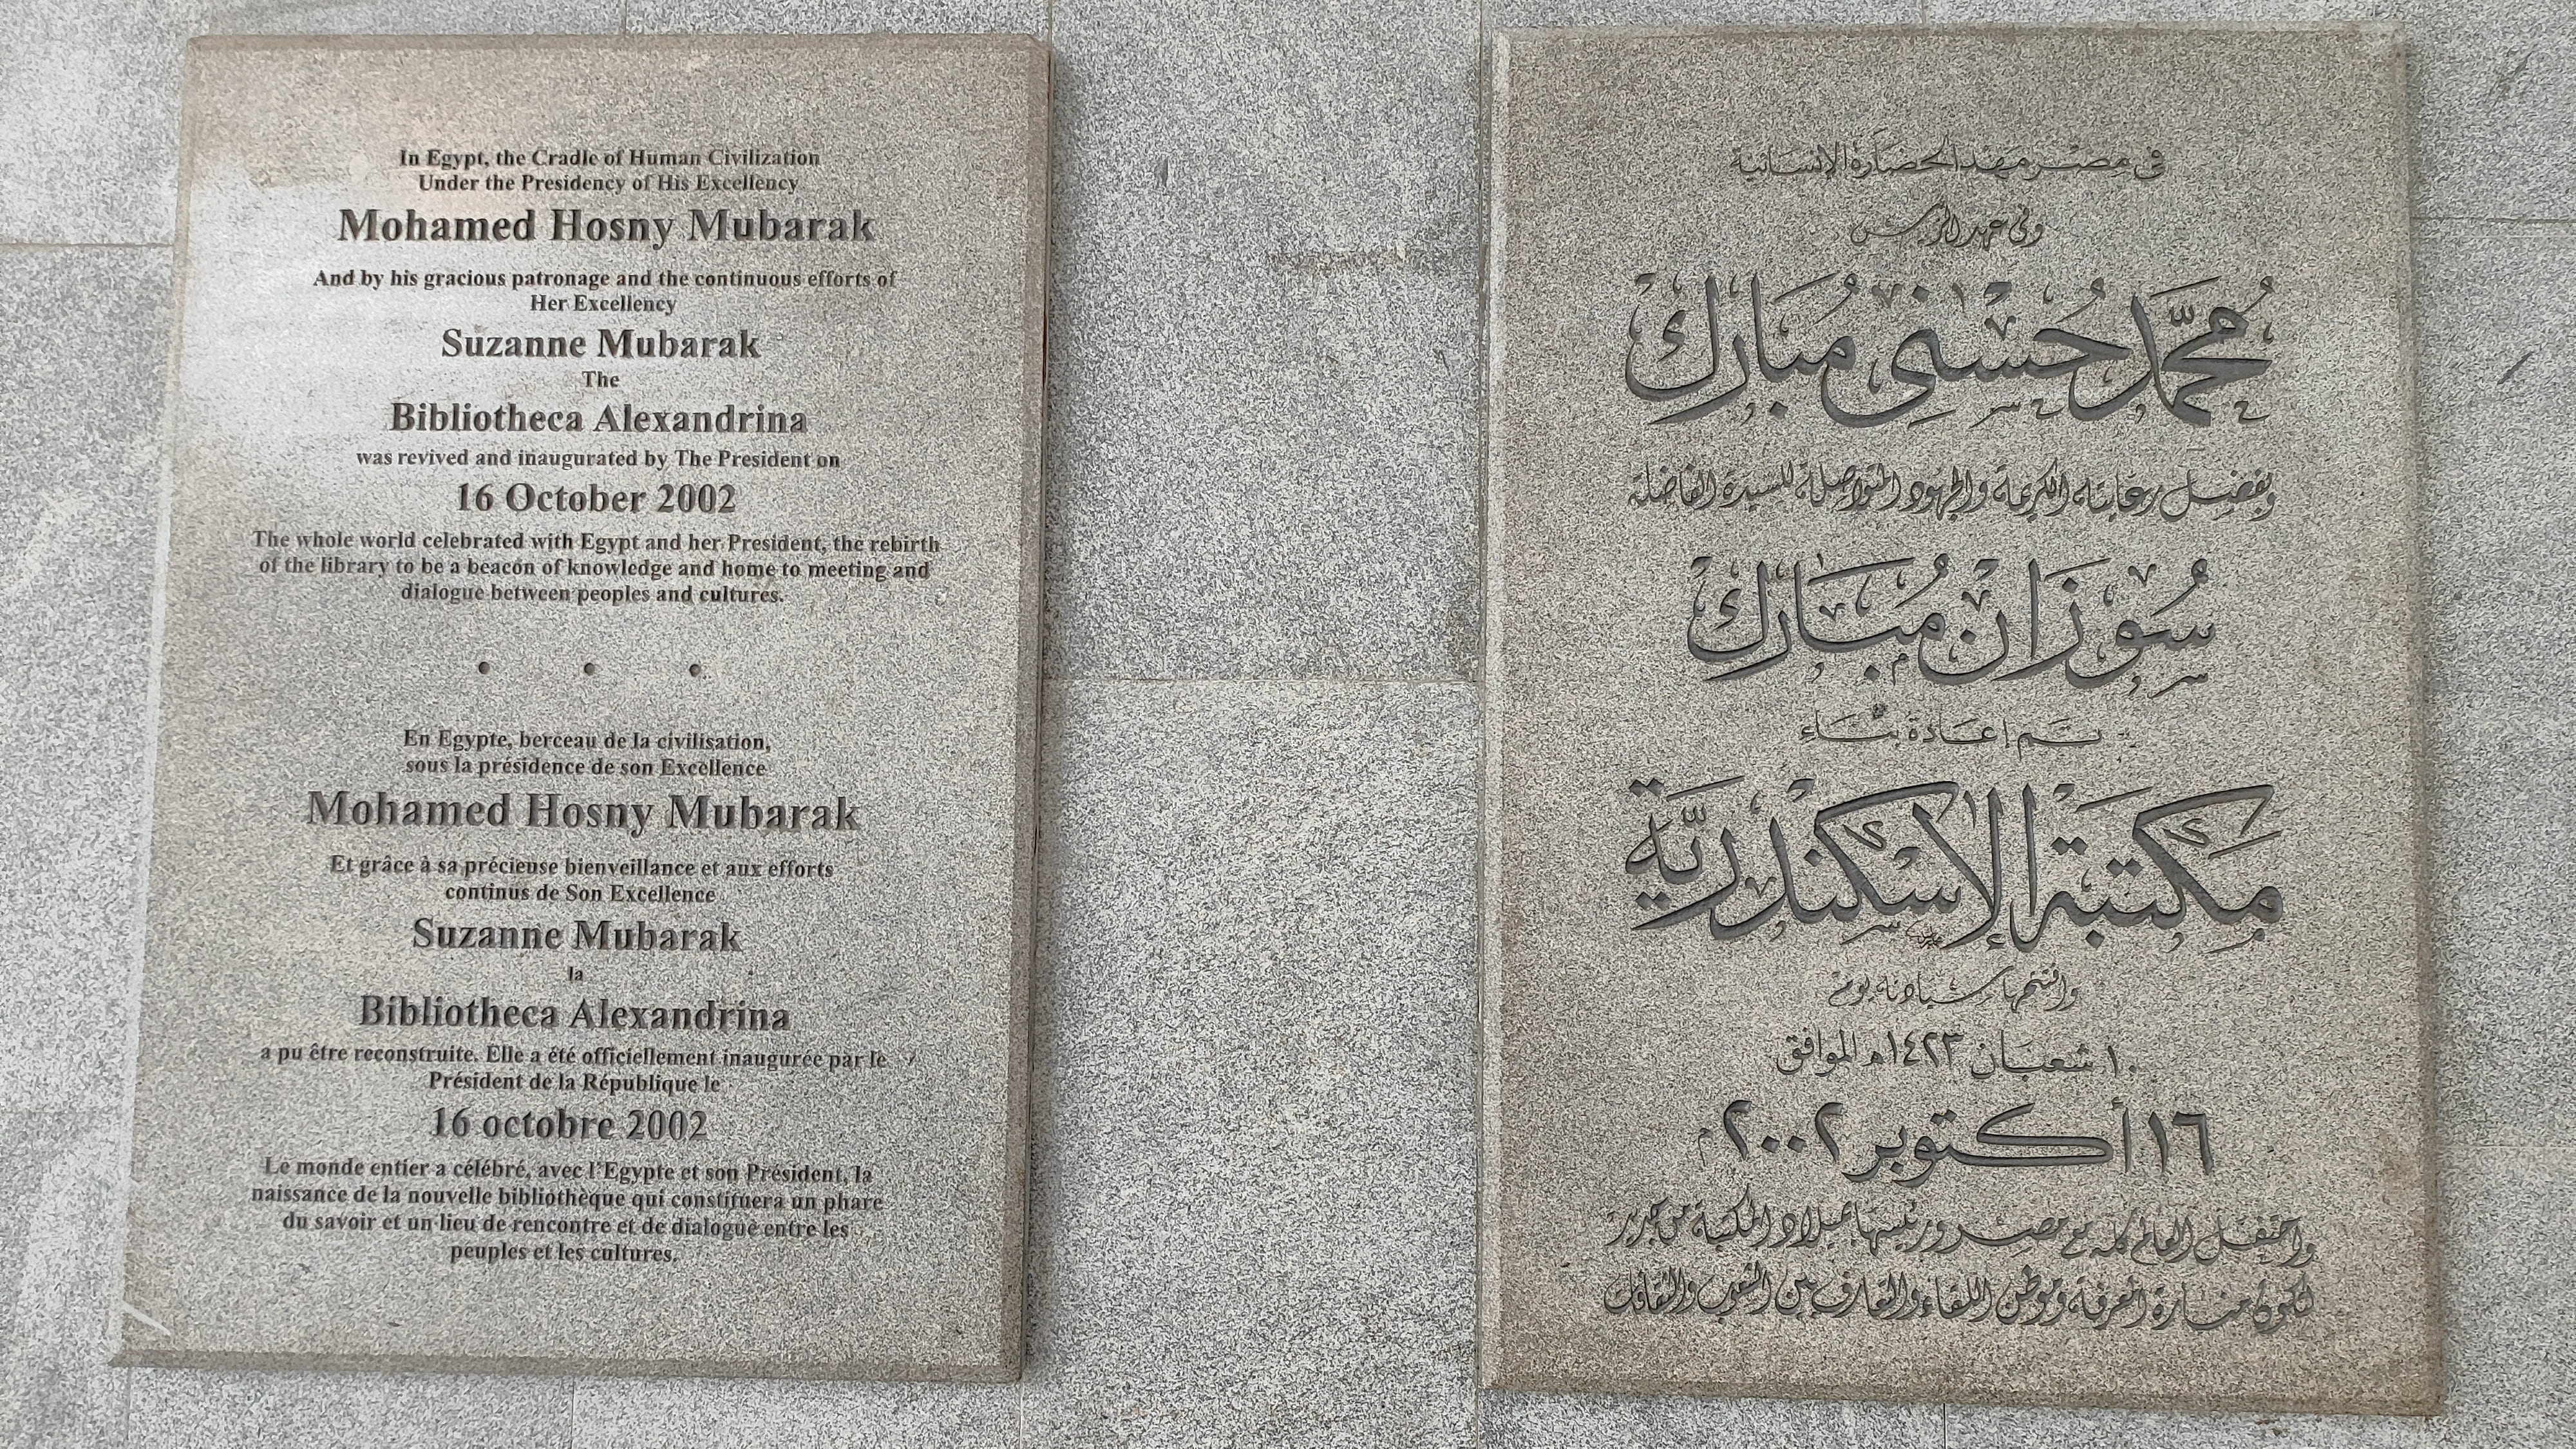 In Egypt, the Cradle of Human Civilization
Under the Presidency of His Excellency
Mohamed Hosny Mubarak
And by his gracious patronage and the continuous efforts of
Her Excellency
Suzanne Mubarak
The
Bibliotheca Alexandrina
was revived and inaugurated by The President on
16 October 2002
The whole world celebrated with Egypt and her President, the rebirth
of the library to be a beacon of knowledge and home to meeting and
dialogue between peoples and cultures.
• • •
En Egypte, berceau de la civilisation,
sous la présidence de son Excellence
Mohamed Hosny Mubarak
Et grâce à sa précieuse bienveillance et aux efforts
continus de Son Excellence
Suzanne Mubarak
la
Bibliotheca Alexandrina
a pu être reconstruite. Elle a été officiellement inaugurée par le
Président de la République le
16 octobre 2002
Le monde entier a célébré, avec l'Egypte et son Président, la
naissance de la nouvelle bibliothèque qui constituera un phare
du savoir et un lieu de rencontre et de dialogue entre les
peuples et les cultures.
فى مصر مهد الحضارة الإنسانية
وفى عهد الرئيس
مُحَمَّد حُسْنِى مُبَارَك
وبفضل رعايته الكريمة والجهود المتواصلة للسيدة الفاضلة
سُوزَان مُبَارَك
تم إعادة بناء
مَكتَبَة الإِسْكَندَرِيَّة
وافتتحها سيادته يوم
١٠ شعبان ١٤٢٣ه الموافق
١٦ أكتوبر ٢٠٠٢م
واحتفل العالم كله مع مصر ورئيسها بميلاد المكتبة من جديد
لتكون منارة للمعرفة وموطن اللقاء والتعارف بين الشعوب والثقافات